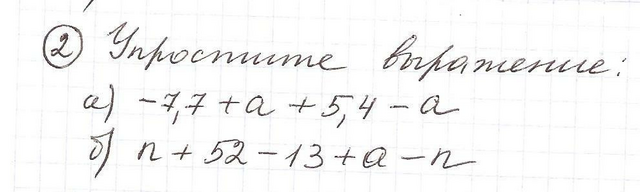 ② Упростите выражение:
а) -7,7 + а + 5,4 - а
б) n + 52 - 13 + а - n